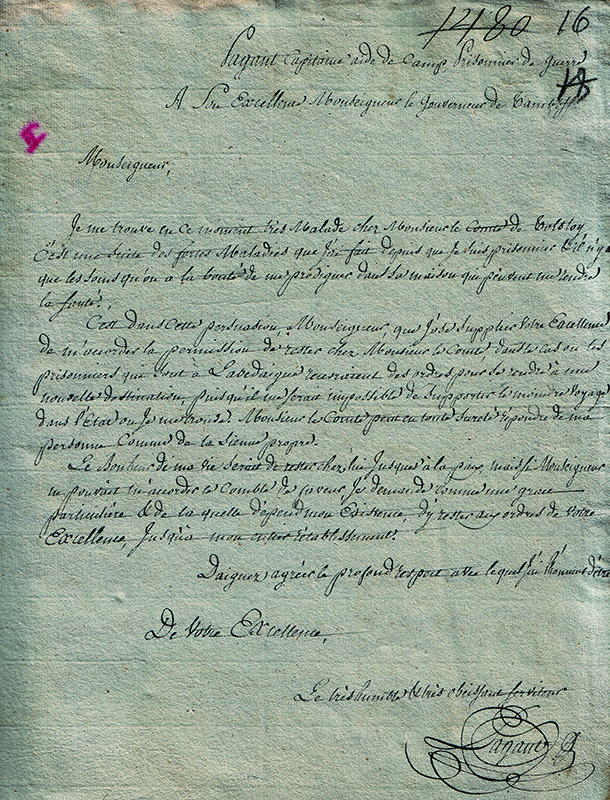 1480 16
Pagant Capitaine aide de Camp Prisonnier de Guerre
18
A Son Excellence Monseigneur le Gouverneur de Tamboff
Monseigneur,
Je me trouve en ce moment très Malade chez Monsieur le Comte de Tolstoy
c'est une suite des fortes Maladies que j'ai fait depuis que Je suis prisonnier & il n'y a
que les soins qu'on a la bonté de me prodiguer dans sa maison qui peuvent me rendre
la santé.
C'est dans Cette persuasion, Monseigneur, que J'ose Supplier Votre Excellence
de m'accorder la permission de rester chez Monsieur le Comte dans le cas ou les
prisonniers qui sont à Lebedaigne recevraient des ordres pour se rendre à une
nouvelle destination, puisqu'il me serait impossible de Supporter le moindre Voyage
dans l'Etat ou Je me trouve. Monsieur le Comte peut en toute Sureté repondre de ma
personne Comme de la Sienne propre.
Le Bonheur de ma Vie Serait de rester chez lui Jusques à la paix, mais si Monseigneur
ne pouvait m'accorder le Comble de faveur, Je demande comme une grace
particulière & de la quelle dépend mon Existence, d'y rester aux ordres de Votre
Excellence, Jusqu'à mon entier rétablissement.
Daignez agréer le profond respect avec lequel j'ai l'honneur d'être
De Votre Excellence,
Le très humble & très obéissant serviteur
Pagant